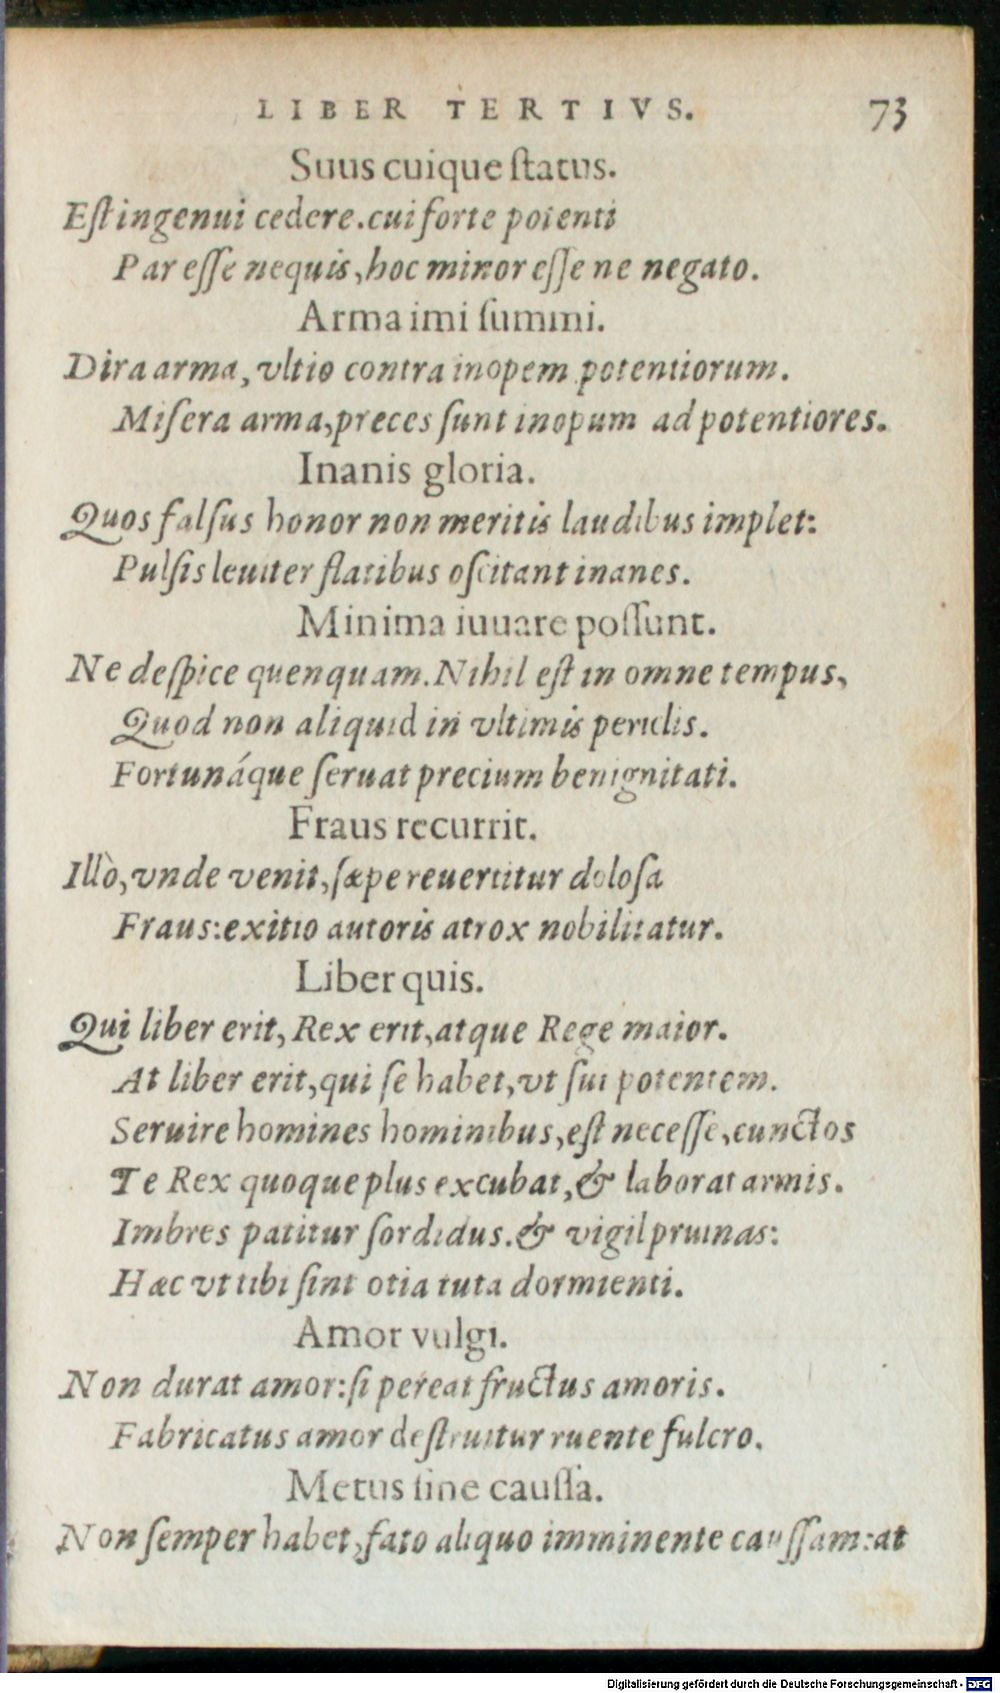 LIBER TERTIVS. 73
Suus cuique ſtatus.
Eſt ingenui cedere. cui forte potenti
Par eſſe nequis, hoc minor eſſe ne negato.
Arma imi ſummi.
Dira arma, vltio contra inopem potentiorum.
Miſera arma, preces ſunt inopum ad potentiores.
Inanis gloria.
Quos falſus honor non meritis laudibus implet:
Pulſis leuiter flatibus oſcitant inanes.
Minima iuuare poſſunt.
Ne deſpice quenquam. Nihil eſt in omne tempus,
Quod non aliquid in vltimis periclis.
Fortunáque ſeruat precium benignitati.
Fraus recurrit.
Illò, vnde venit, ſæpe reuertitur doloſa
Fraus: exitio autoris atrox nobilitatur.
Liber quis.
Qui liber erit, Rex erit, atque Rege maior.
At liber erit, qui ſe habet, vt ſui potentem.
Seruire homines hominibus, eſt neceſſe, cunctos
Te Rex quoque plus excubat, & laborat armis.
Imbres patitur ſordidus. & vigil pruinas:
Hæc vt tibi ſint otia tuta dormienti.
Amor vulgi.
Non durat amor: ſi pereat fructus amoris.
Fabricatus amor deſtruitur ruente fulcro.
Metus ſine cauſſa.
Non ſemper habet, fato aliquo imminente cauſſam: at
Digitalisierung gefördert durch die Deutsche Forschungsgemeinschaft - DFG